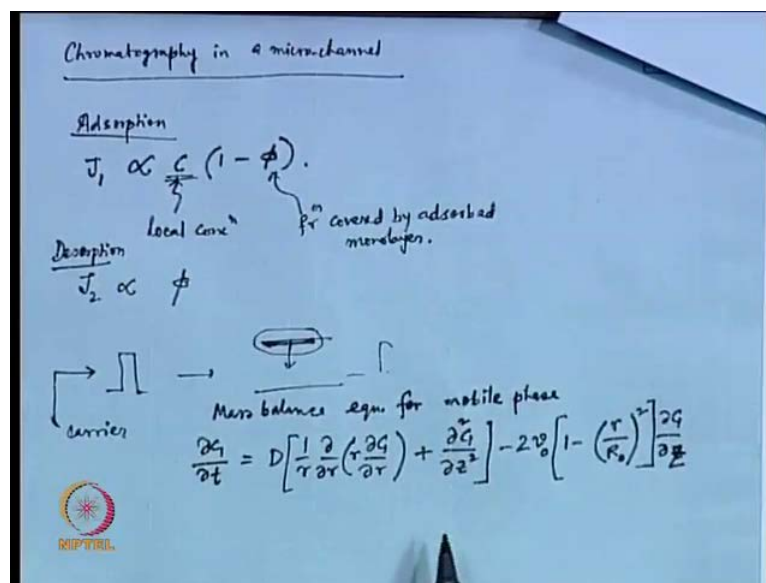 Chromatography in a micro-channel
Adsorption
J₁ ∝ C (1 - ϕ).
local concⁿ
frⁿ covered by adsorbed
monolayer.
Desorption
J₂ ∝ ϕ
carrier
Mass balance eqn. for mobile phase
∂C₁/∂t = D[1/r ∂/∂r (r ∂C₁/∂r) + ∂²C₁/∂z²] - 2v₀[1 - (r/R₀)²] ∂C₁/∂z
NPTEL